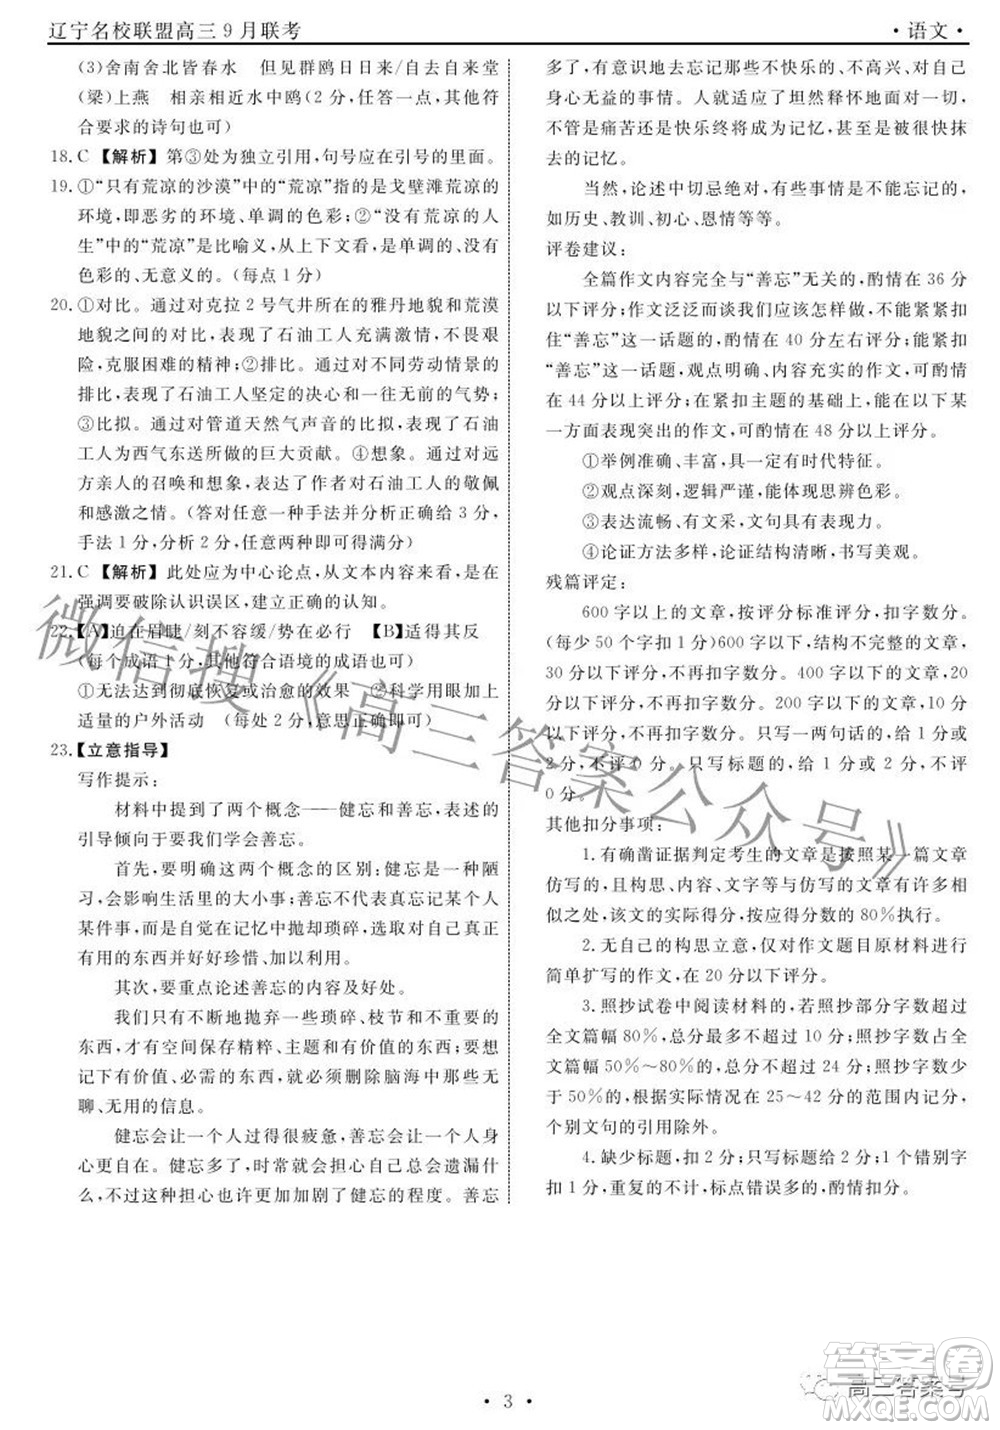 辽宁名校联盟高三9月联考
·语文·
(3)舍南舍北皆春水　但见群鸥日日来/自去自来堂
(梁)上燕　相亲相近水中鸥(2分,任答一点,其他符
合要求的诗句也可)
18.C【解析】第③处为独立引用,句号应在引号的里面。
19.①“只有荒凉的沙漠”中的“荒凉”指的是戈壁滩荒凉的
环境,即恶劣的环境、单调的色彩;②“没有荒凉的人
生”中的“荒凉”是比喻义,从上下文看,是单调的、没有
色彩的、无意义的。(每点1分)
20.①对比。通过对克拉2号气井所在的雅丹地貌和荒漠
地貌之间的对比,表现了石油工人充满激情,不畏艰
险,克服困难的精神;②排比。通过对不同劳动情景的
排比,表现了石油工人坚定的决心和一往无前的气势;
③比拟。通过对管道天然气声音的比拟,表现了石油
工人为西气东送所做的巨大贡献。④想象。通过对远
方亲人的召唤和想象,表达了作者对石油工人的敬佩
和感激之情。(答对任意一种手法并正确给3分,
手法1分,分析2分,任意两种即可得满分)
21.C【解析】此处应为中心论点,从文本内容来看,是在
强调要破除认识误区,建立正确的认知。
22.【A】迫在眉睫/刻不容缓/势在必行　【B】适得其反
(每个成语1分,其他符合语境的成语也可)
①无法达到彻底恢复或治愈的效果　②科学用眼加上
适量的户外活动　(每处2分,意思正确即可)
23.【立意指导】
写作提示:
材料中提到了两个概念——健忘和善忘,表述的
引导倾向于要我们学会善忘。
首先,要明确这两个概念的区别:健忘是一种陋
习,会影响生活的大小事;善忘不代表不能忘记某人
某件事,而是有意识地在记忆中抛却琐碎,选取对自己
有用的东西并好好珍惜、加以利用。
其次,要重点论述善忘的内容及好处。
我们只有不断地抛弃一些琐碎、枝节和不重要的
东西,才有空间保存精粹、主题和有价值的东西;想存
下更有价值、必需的东西,就必须删除脑海中那些无
聊、无用的信息。
健忘会让一个人过得很疲惫,善忘会让一个人身
心更加健康。健忘多了,常常就会担心自己总会遗漏什
么,而这种担心也许更加加剧了健忘的程度。善忘
多了,有意识地去忘记那些不快乐的、不高兴、对自己
身心无益的事情。人就适应了坦然释怀地面对一切,
不管是痛苦还是快乐终将成为记忆,而你会很快抹
去的记忆。
当然,论述中切忌绝对,有些事情是不能忘记的,
如历史、教训、初心、恩情等等。
评卷建议:
全篇作文内容完全与“善忘”无关的,酌情在36分
以下评分;作文泛泛而谈我们应该怎样做,不能紧紧扣
住“善忘”这一话题的,酌情在40分左右评分;能紧扣
“善忘”这一话题,观点明确、内容充实的作文,可酌情
在44分以上评分;在紧扣主题的基础上,能在以下某
一方面表现突出的作文,可酌情在48分以上评分。
①举例准确、丰富,具有时代特征。
②观点深刻,逻辑严谨,能体现思辨色彩。
③表达流畅、有文采,文句具有表现力。
④论证方法多样,论证结构清晰,书写美观。
残篇评定:
600字以上的文章,按评分标准评分,扣字数分。
(每少50个字扣1分)600字以下,结构不完整的文章,
30分以下评分,不再扣字数分。400字以下的文章,20
分以下评分,不再扣字数分。200字以下的文章,10分
以下评分,不再扣字数分。只写一两句话的,给1分或
2分,不评0分。只写标题的,给1分或2分,不评
0分。
其他扣分事项:
1.有确凿证据判定考生的文章是按照某一篇文章
仿写的,且构思、内容、文字等与仿写的文章有许多相
似之处,该文的实际得分,按应得分数的80%执行。
2.无自己的构思立意,仅对作文题目原材料进行
简单扩写的作文,在20分以下评分。
3.照抄试卷中阅读材料的,若照抄部分字数超过
全文篇幅80%,总分最多不超过10分;照抄字数占全
文篇幅50%～80%的,总分不超过24分;照抄字数少
于50%的,根据实际情况在25～42分的范围内记分,
个别文句的引用除外。
4.缺少标题,扣2分;只写标题的,每一个错别字
扣1分,重复的不计,标点错误多的,酌情扣分。
微信搜《高三答案公众号》
·3·
高三答案号
答案圈
MXQE.COM